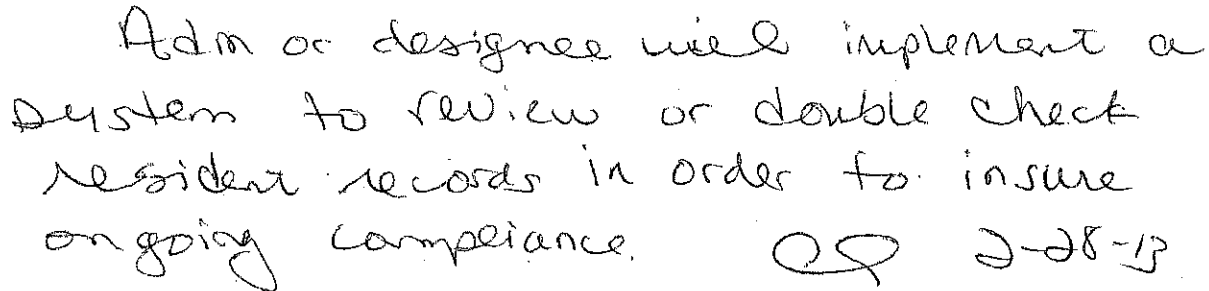 Adm or designee will implement a
system to review or double check
resident records in order to insure
ongoing compliance. 2-28-13